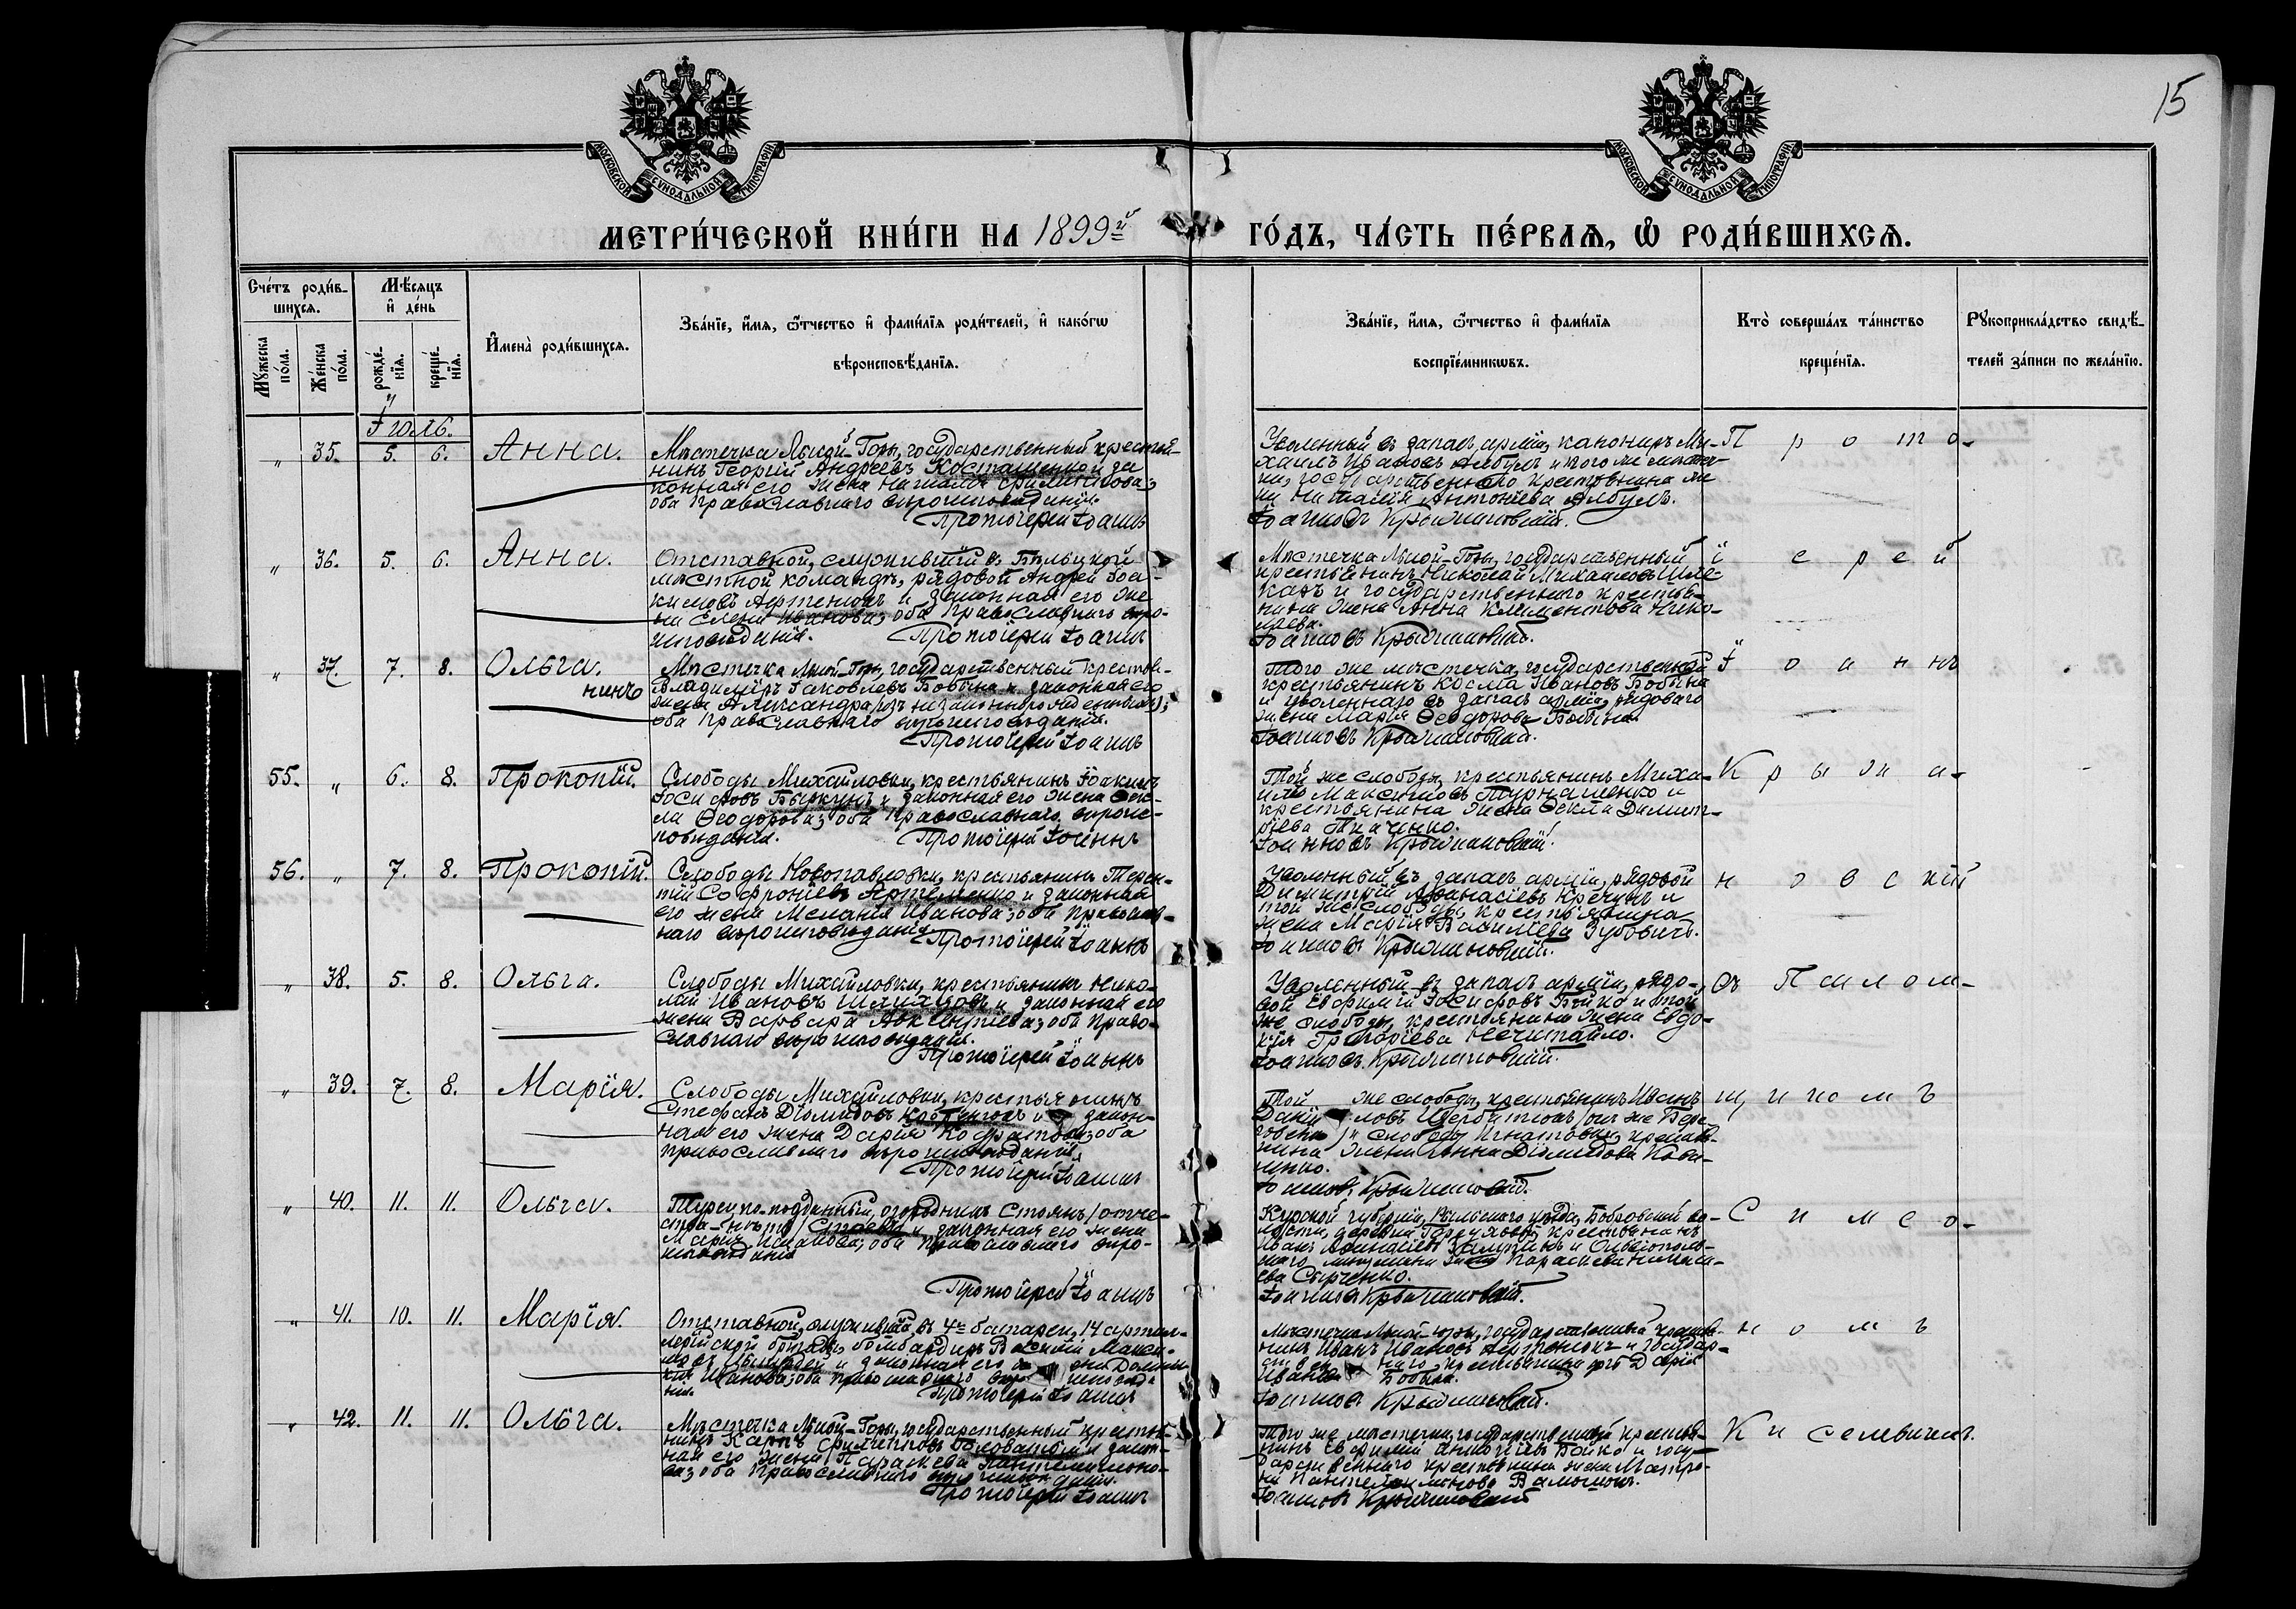 15
МОСКОВСКОЙ СУНОДАЛЬНОЙ ТИПОГРАФІИ
МОСКОВСКОЙ СУНОДАЛЬНОЙ ТИПОГРАФІИ
МЕТРИ́ЧЕСКОЙ КНИ́ГИ НА 1899й ГО́ДЪ, ЧА́СТЬ ПЕ́РВАѦ, Ѡ҆ РОДИ́ВШИХСѦ.
Сче́тъ роди́в-
шихсѧ.
Мѣ́сѧцъ
и҆ де́нь
Мꙋ́жеска
по́ла.
Же́нска
по́ла.
рожде́-
нїѧ.
креще́-
нїѧ.
И҆мена̀ роди́вшихсѧ.
Зва́нїе, и҆́мѧ, ѻ҆́тчество и҆ фами́лїѧ роди́телей, и҆ како́гѡ
вѣроисповѣ́данїѧ.
Зва́нїе, и҆́мѧ, ѻ҆́тчество и҆ фами́лїѧ
воспрїе́мникѡвъ.
Кто̀ соверша́лъ та́инство
креще́нїѧ.
Рꙋкоприкла́дство свидѣ́-
телей за́писи по жела́нїю.
Іюль.
„ 35. 5. 6. Анна.
Мѣстечка Лысой-Горы, государственный крестья-
нинъ Георгій Андреевъ и за
конная его жена Наталія Филиппова;
оба Православнаго вѣроисповѣданія.
Протоіерей Іоаннъ
Уволенный въ запасъ арміи, канониръ Ми-
хаилъ Ивановъ Албулъ и того же мѣстеч-
ка, государственнаго крестьянина же
на Наталія Антоніева Албулъ.
Іоанновъ Крыжановскій.
П р о т о-
„ 36. 5. 6. Анна.
Отставной, служившій въ Бѣльцкой
мѣстной командѣ, рядовой Андрей Іоа-
кимовъ и законная его же
на Елена Иванова; оба Православнаго вѣро-
исповѣданія. Протоіерей Іоаннъ
Мѣстечка Лысой-Горы, государственный
крестьянинъ Николай Михаиловъ
и государственнаго крестья-
нина жена Анна Климентова Нико-
лаева.
Іоанновъ Крыжановскій.
і е р е й
„ 37. 7. 8. Ольга.
Мѣстечка Лысой-Горы, государственный крестья-
нинъ Владиміръ Іаковлевъ Бобына и законная его
жена Александра (изъ незаконнорожденныхъ);
оба Православнаго вѣроисповѣданія.
Протоіерей Іоаннъ
Того же мѣстечка, государственный
крестьянинъ Косма Ивановъ Бобына
и уволеннаго въ запасъ арміи, рядоваго
жена Марія Ѳеодорова Бобына.
Іоанновъ Крыжановскій.
І о а н н ъ
55. „ 6. 8. Прокопій.
Слободы Михайловки, крестьянинъ Іоакимъ
Іосифовъ и законная его жена Ѳек-
ла Ѳеодорова; оба Православнаго вѣроис-
повѣданія. Протоіерей Іоаннъ
Той же слободы, крестьянинъ Миха-
илъ Максимовъ и
крестьянина жена Ѳекла Димит-
ріева Ткаченко.
Іоанновъ Крыжановскій.
К р ы ж а-
56. „ 7. 8. Прокопій.
Слободы Новопавловки, крестьянинъ Терен-
тій Софроніевъ Артеменко и законная
его жена Меланія Иванова; оба Православ-
наго вѣроисповѣданія. Протоіерей Іоаннъ
Уволенный въ запасъ арміи, рядовой
Димитрій Аѳанасіевъ Кречунъ и
той же слободы, крестьянина
жена Марія Василіева Зубовичъ.
Іоанновъ Крыжановскій.
н о в с кій
„ 38. 5. 8. Ольга.
Слободы Михайловки, крестьянинъ Нико-
лай Ивановъ и законная его
жена Варвара Авксентіева; оба Право-
славнаго вѣроисповѣданія.
Протоіерей Іоаннъ
Уволенный въ запасъ арміи, рядо-
вой Евфимій Іосифовъ Бойко и той
же слободы, крестьянина жена Евдо-
кія Григоріева Нечитайло.
Іоанновъ Крыжановскій.
съ П с а л о м-
„ 39. 7. 8. Марія.
Слободы Михайловки, крестьянинъ
Стефанъ Діомидовъ и закон-
ная его жена Дарія оба
православнаго вѣроисповѣданія.
Протоіерей Іоаннъ
Той же слободы, крестьянинъ Иванъ
Даніиловъ и слободы Игнатовки, крестья-
нина жена Анна Діомидова
Іоанновъ Крыжановскій.
щ и к о м ъ
„ 40. 11. 11. Ольга.
Турецко-подданный, огородникъ Стоянъ (отче-
ства нѣтъ) Стоевъ и законная его жена
Марія Иванова; оба Православнаго вѣро-
исповѣданія
Протоіерей Іоаннъ
Курской губерніи, уѣзда, Бобровской во-
лости, деревни крестьянинъ
и Ольвіополь-
скаго мѣщанина жена Параскева
Сырченко.
Іоанновъ Крыжановскій.
С и м е о-
„ 41. 10. 11. Марія.
Отставной, служившій въ 4й батареи, 14 артил-
лерійской бригады, бомбардиръ Василій Макси-
мовъ и законная его жена
Иванова; оба православнаго вѣроисповѣда
нія. Протоіерей Іоаннъ
Мѣстечка Лысой-Горы, государственный крестья-
нинъ Иванъ Ивановъ и государ-
ственнаго крестьянина дочь Дарія
Иванова Бобына.
Іоанновъ Крыжановскій.
н о м ъ
„ 42. 11. 11. Ольга.
Мѣстечка Лысой-Горы, государственный крестья-
нинъ Карпъ Филипповъ Головатый и закон-
ная его жена Параскева Пантелеимоно-
ва; оба Православнаго вѣроисповѣданія.
Протоіерей Іоаннъ
Того же мѣстечка, государственный крестья-
нинъ Евфимій Антоніевъ Бойко и госу-
дарственнаго крестьянина жена Матро-
на Пантелеимонова
Іоанновъ Крыжановскій
К и селевичемъ.